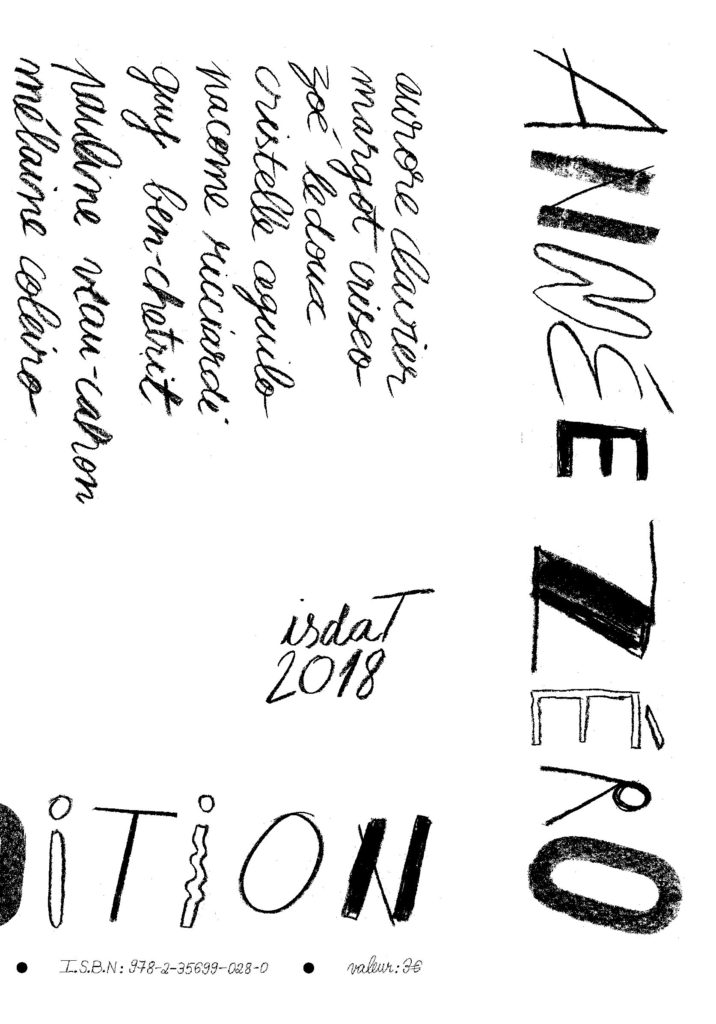 ANNÉE ZÉRO
aurore clavier
margot criseo
zoé ledoux
cristelle aguilo
pacome ricciardi
guy ben-chetrit
pauline veau-cahon
mélaine coleiro
isdaT
2018
DITION
I.S.B.N: 978-2-35699-028-0
valeur: 3€